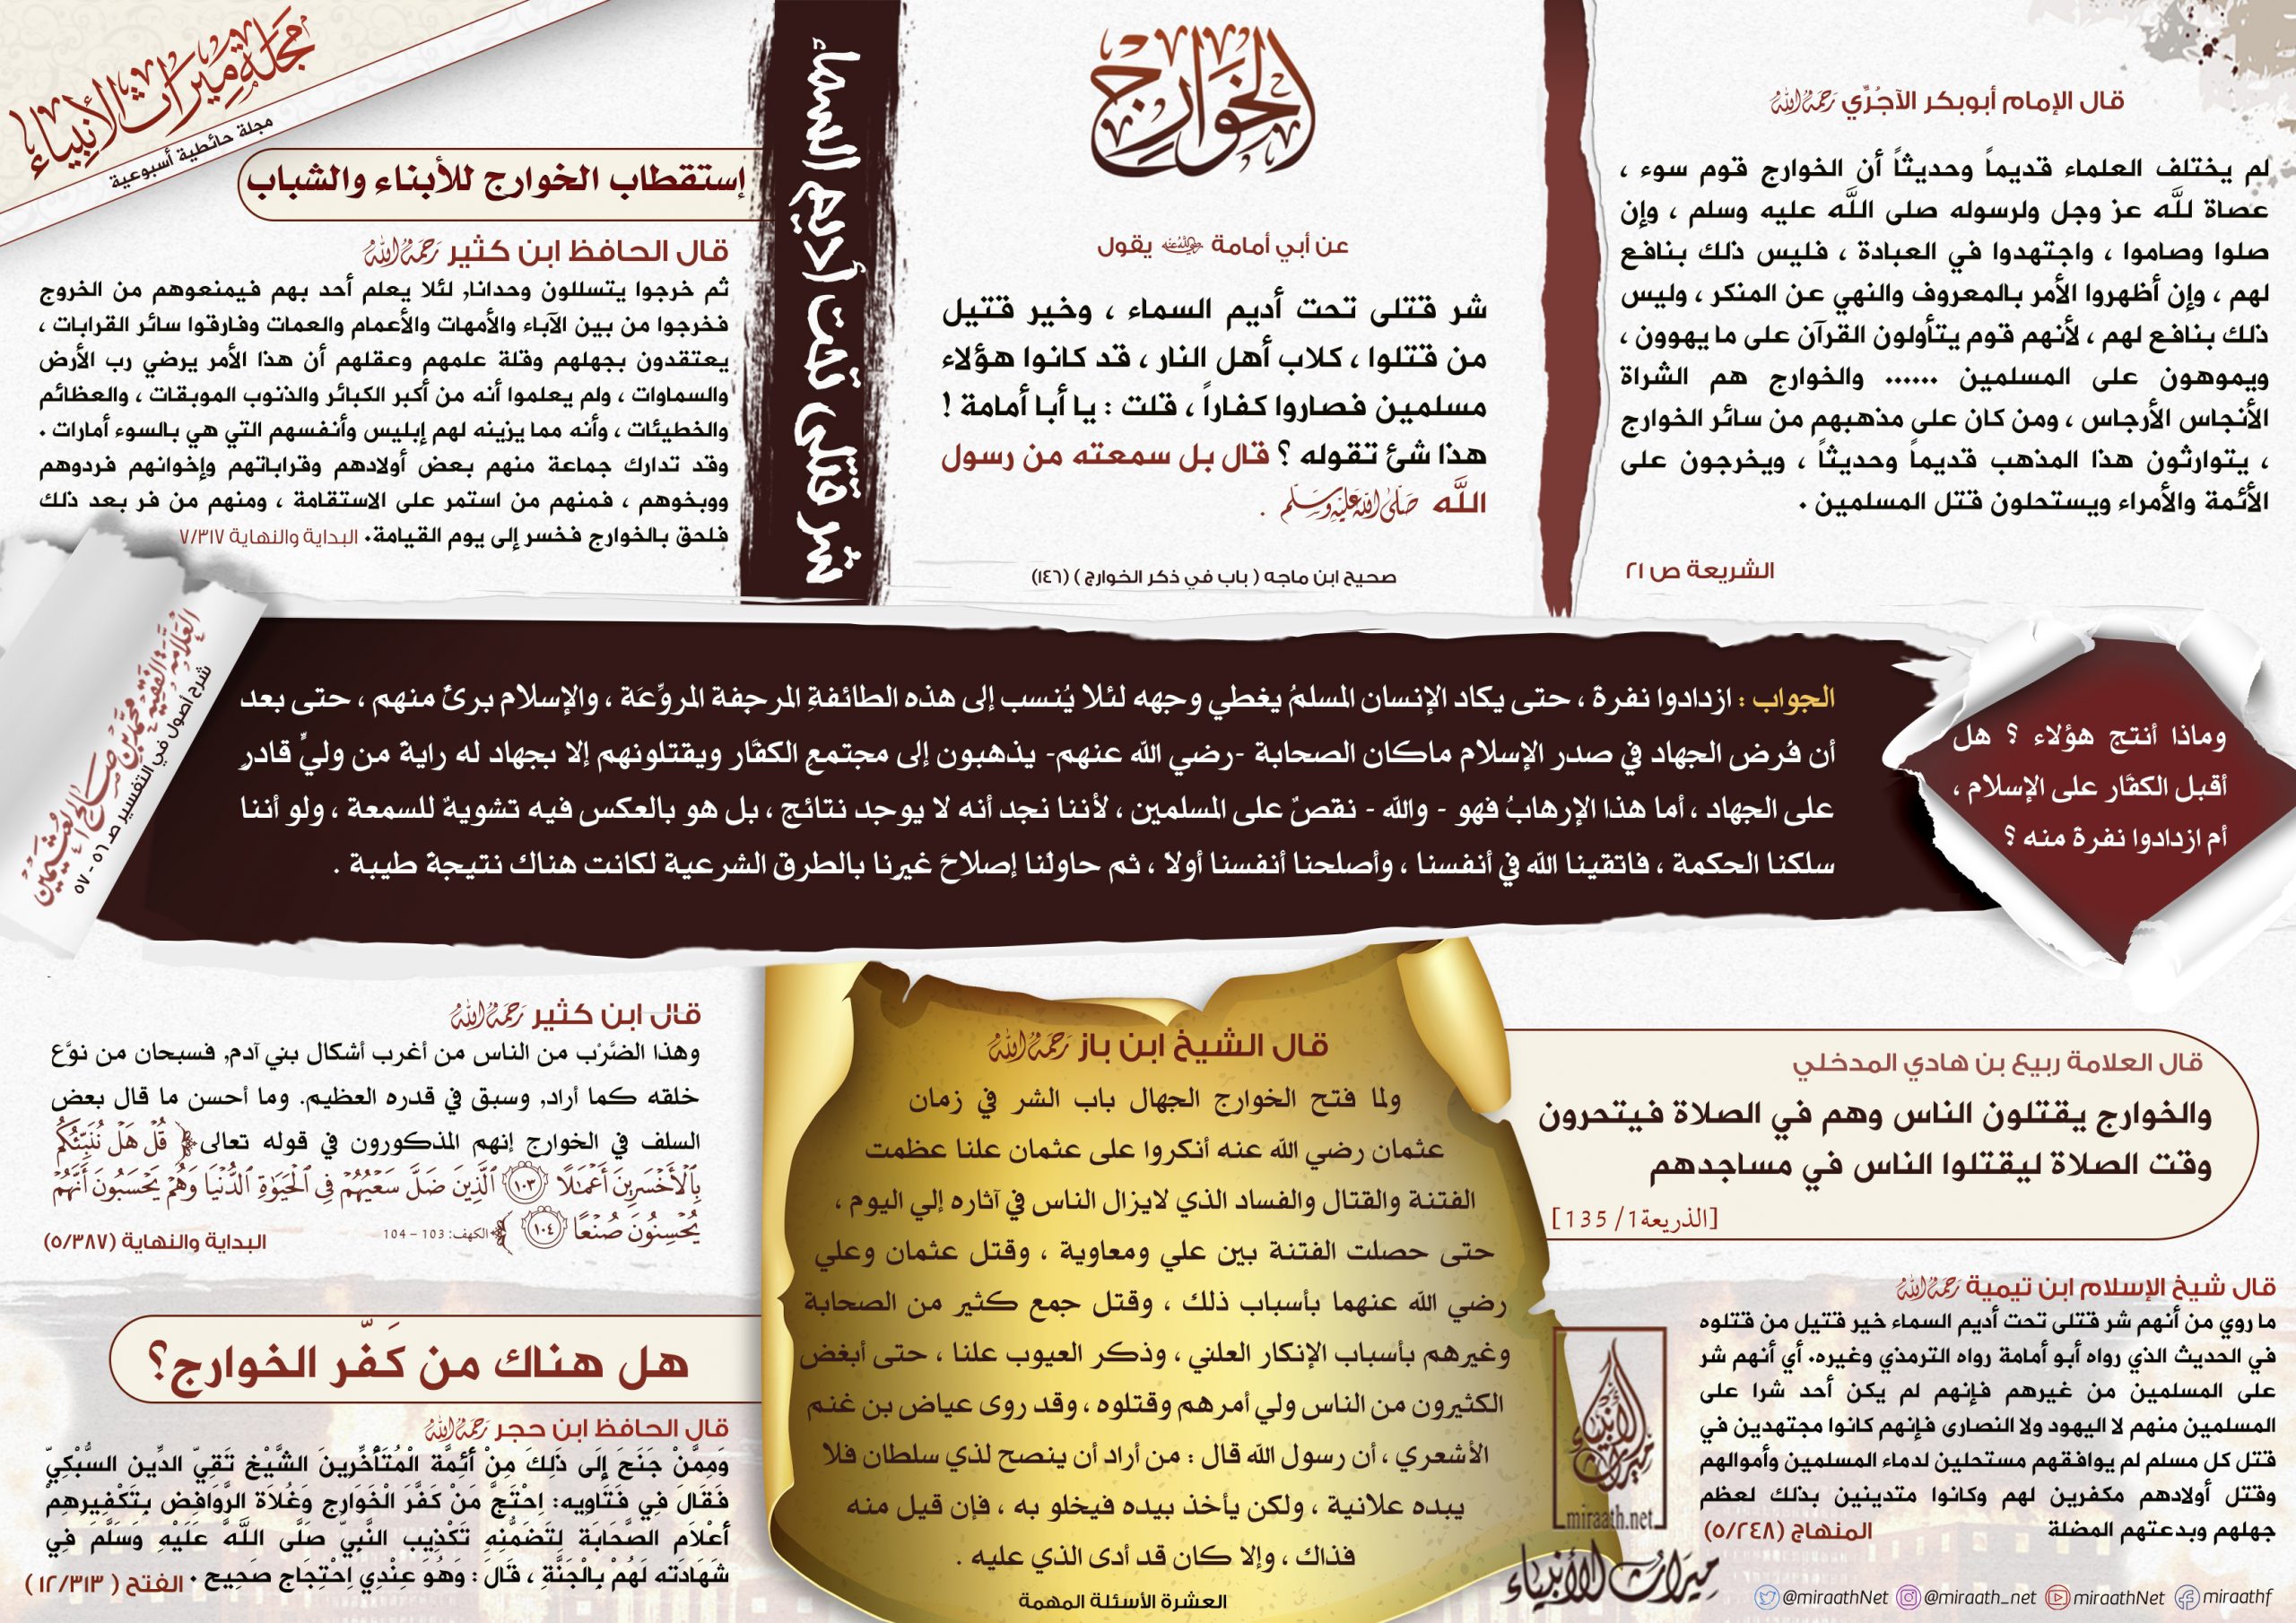 قال الإمام أبوبكر الآجُرِّي رَحِمَهُ اللَّهُ
لم يختلف العلماء قديماً وحديثاً أن الخوارج قوم سوء ،
عصاة للَّه عز وجل ولرسوله صلى اللَّه عليه وسلم ، وإن
صلوا وصاموا ، واجتهدوا في العبادة ، فليس ذلك بنافع
لهم ، وإن أظهروا الأمر بالمعروف والنهي عن المنكر ، وليس
ذلك بنافع لهم ، لأنهم قوم يتأولون القرآن على ما يهوون ،
ويموهون على المسلمين ...... والخوارج هم الشراة
الأنجاس الأرجاس ، ومن كان على مذهبهم من سائر الخوارج
، يتوارثون هذا المذهب قديماً وحديثاً ، ويخرجون على
الأئمة والأمراء ويستحلون قتل المسلمين .
الشريعة ص ٢١
الخوارج
عن أبي أمامة رضي الله عنه يقول
شر قتلى تحت أديم السماء ، وخير قتيل
من قتلوا ، كلاب أهل النار ، قد كانوا هؤلاء
مسلمين فصاروا كفاراً ، قلت : يا أبا أمامة !
هذا شئ تقوله ؟ قال بل سمعته من رسول
اللَّه صَلَّى اللَّهُ عَلَيْهِ وَسَلَّمَ .
صحيح ابن ماجه ( باب في ذكر الخوارج ) (١٤٦)
شر قتلى تحت أديم السماء
مجلة ميراث الأنبياء
مجلة حائطية أسبوعية
إستقطاب الخوارج للأبناء والشباب
قال الحافظ ابن كثير رَحِمَهُ اللَّهُ
ثم خرجوا يتسللون وحدانا, لئلا يعلم أحد بهم فيمنعوهم من الخروج
فخرجوا من بين الآباء والأمهات والأعمام والعمات وفارقوا سائر القرابات ،
يعتقدون بجهلهم وقلة علمهم وعقلهم أن هذا الأمر يرضي رب الأرض
والسماوات ، ولم يعلموا أنه من أكبر الكبائر والذنوب الموبقات ، والعظائم
والخطيئات ، وأنه مما يزينه لهم إبليس وأنفسهم التي هي بالسوء أمارات .
وقد تدارك جماعة منهم بعض أولادهم وقراباتهم وإخوانهم فردوهم
ووبخوهم ، فمنهم من استمر على الاستقامة ، ومنهم من فر بعد ذلك
فلحق بالخوارج فخسر إلى يوم القيامة. البداية والنهاية ٧/٣١٧
وماذا أنتج هؤلاء ؟ هل
أقبل الكفَّار على الإسلام ،
أم ازدادوا نفرةً منه ؟
الجواب : ازدادوا نفرةً ، حتى يكاد الإنسان المسلمُ يغطي وجهه لئلا يُنسب إلى هذه الطائفةِ المرجفة المروِّعَة ، والإسلام برئٌ منهم ، حتى بعد
أن فُرض الجهاد في صدر الإسلام ماكان الصحابة -رضي الله عنهم- يذهبون إلى مجتمع الكفَّار ويقتلونهم إلا بجهاد له راية من وليٍّ قادرٍ
على الجهاد ، أما هذا الإرهابُ فهو - والله - نقصٌ على المسلمين ، لأننا نجد أنه لا يوجد نتائج ، بل هو بالعكس فيه تشويهٌ للسمعة ، ولو أننا
سلكنا الحكمة ، فاتقينا الله في أنفسنا ، وأصلحنا أنفسنا أولا ، ثم حاولنا إصلاحَ غيرنا بالطرق الشرعية لكانت هناك نتيجة طيبة .
العلامة الفقيه محمد بن صالح العثيمين
شرح أصول في التفسير صـ ٥٦ - ٥٧
قال العلامة ربيع بن هادي المدخلي
والخوارج يقتلون الناس وهم في الصلاة فيتحرون
وقت الصلاة ليقتلوا الناس في مساجدهم
[الذريعة1/ 135]
قال شيخ الإسلام ابن تيمية رَحِمَهُ اللَّهُ
ما روي من أنهم شر قتلى تحت أديم السماء خير قتيل من قتلوه
في الحديث الذي رواه أبو أمامة رواه الترمذي وغيره. أي أنهم شر
على المسلمين من غيرهم فإنهم لم يكن أحد شرا على
المسلمين منهم لا اليهود ولا النصارى فإنهم كانوا مجتهدين في
قتل كل مسلم لم يوافقهم مستحلين لدماء المسلمين وأموالهم
وقتل أولادهم مكفرين لهم وكانوا متدينين بذلك لعظم
جهلهم وبدعتهم المضلة المنهاج (٥/٢٤٨)
قال الشيخ ابن باز رَحِمَهُ اللَّهُ
ولما فتح الخوارج الجهال باب الشر في زمان
عثمان رضي الله عنه أنكروا على عثمان علنا عظمت
الفتنة والقتال والفساد الذي لايزال الناس في آثاره إلي اليوم ،
حتى حصلت الفتنة بين علي ومعاوية ، وقتل عثمان وعلي
رضي الله عنهما بأسباب ذلك ، وقتل جمع كثير من الصحابة
وغيرهم بأسباب الإنكار العلني ، وذكر العيوب علنا ، حتى أبغض
الكثيرون من الناس ولي أمرهم وقتلوه ، وقد روى عياض بن غنم
الأشعري ، أن رسول الله قال : من أراد أن ينصح لذي سلطان فلا
يبده علانية ، ولكن يأخذ بيده فيخلو به ، فإن قيل منه
فذاك ، وإلا كان قد أدى الذي عليه .
العشرة الأسئلة المهمة
قال ابن كثير رَحِمَهُ اللَّهُ
وهذا الضَّرْب من الناس من أغرب أشكال بني آدم, فسبحان من نوَّع
خلقه كما أراد, وسبق في قدره العظيم. وما أحسن ما قال بعض
السلف في الخوارج إنهم المذكورون في قوله تعالى ﴿ قُلْ هَلْ نُنَبِّئُكُم
بِٱلْأَخْسَرِينَ أَعْمَٰلًا ١٠٣ ٱلَّذِينَ ضَلَّ سَعْيُهُمْ فِى ٱلْحَيَوٰةِ ٱلدُّنْيَا وَهُمْ يَحْسَبُونَ أَنَّهُمْ
يُحْسِنُونَ صُنْعًا ١٠٤ ﴾ الكهف: 103 – 104 البداية والنهاية (٥/٣٨٧)
هل هناك من كَفّر الخوارج؟
قال الحافظ ابن حجر رَحِمَهُ اللَّهُ
وَمِمَّنْ جَنَحَ إِلَى ذَلِكَ مِنْ أَئِمَّة الْمُتَأَخِّرِينَ الشَّيْخ تَقِيّ الدِّين السُّبْكِيّ
فَقَالَ فِي فَتَاوِيه: اِحْتَجَّ مَنْ كَفَّرَ الْخَوَارِج وَغُلَاة الرَّوَافِض بِتَكْفِيرِهِمْ
أَعْلَام الصَّحَابَة لِتَضَمُّنِهِ تَكْذِيب النَّبِيّ صَلَّى اللَّهُ عَلَيْهِ وَسَلَّمَ فِي
شَهَادَته لَهُمْ بِالْجَنَّةِ ، قَالَ : وَهُوَ عِنْدِي اِحْتِجَاج صَحِيح . الفتح ( ١٢/٣١٣ )
ميراث الأنبياء
miraath.net
ميراث الأنبياء
@miraathNet @miraath_net miraathNet miraathf